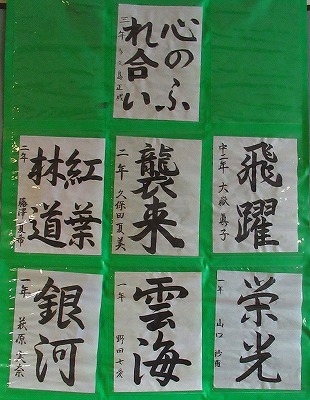 心のふ
れ合い
三年
飛躍
中二年 大嶽 真子
襲来
二年 久保田夏美
紅葉
林道
年 藤津夏希
栄光
一年 山口
雲海
一年 野田七愛
銀河
一年 萩原実奈